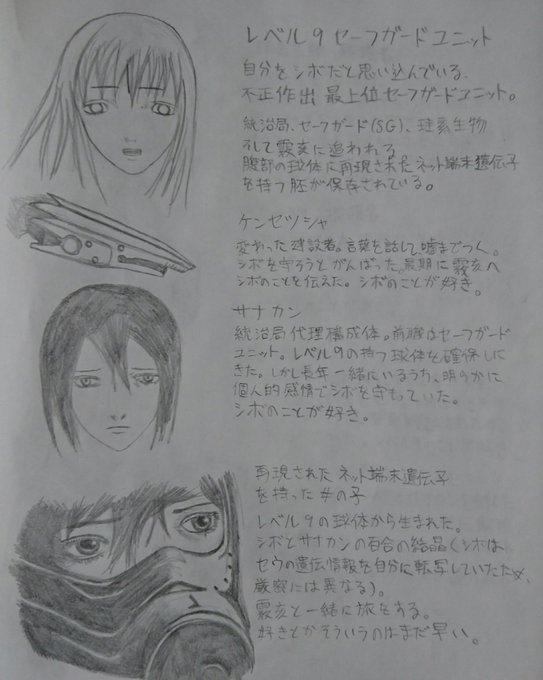 レベル9セーフガードユニット
自分をシボだと思い込んでいる、
不正作出 最上位セーフガードユニット。
統治局、セーフガード(SG)、珪素生物
そして霧亥に追われる
腹部の球体に再現されたネット端末遺伝子
を持つ胚が保存されている。
ケンセツシャ
変わった建設者。言葉を話して、嘘までつく。
シボを守ろうとがんばった。最期に霧亥へ
シボのことを伝えた。シボのことが好き。
サナカン
統治局代理構成体。前職はセーフガード
ユニット。レベル9の持つ球体を確保しに
きた。しかし長年一緒にいるうち、明らかに
個人的感情でシボを守っていた。
シボのことが好き。
再現されたネット端末遺伝子
を持った女の子
レベル9の球体から生まれた。
シボとサナカンの百合の結晶(シボは
セウの遺伝情報を自分に転写していたため、
厳密には異なる)。
霧亥と一緒に旅をする。
好きとかそういうのはまだ早い。